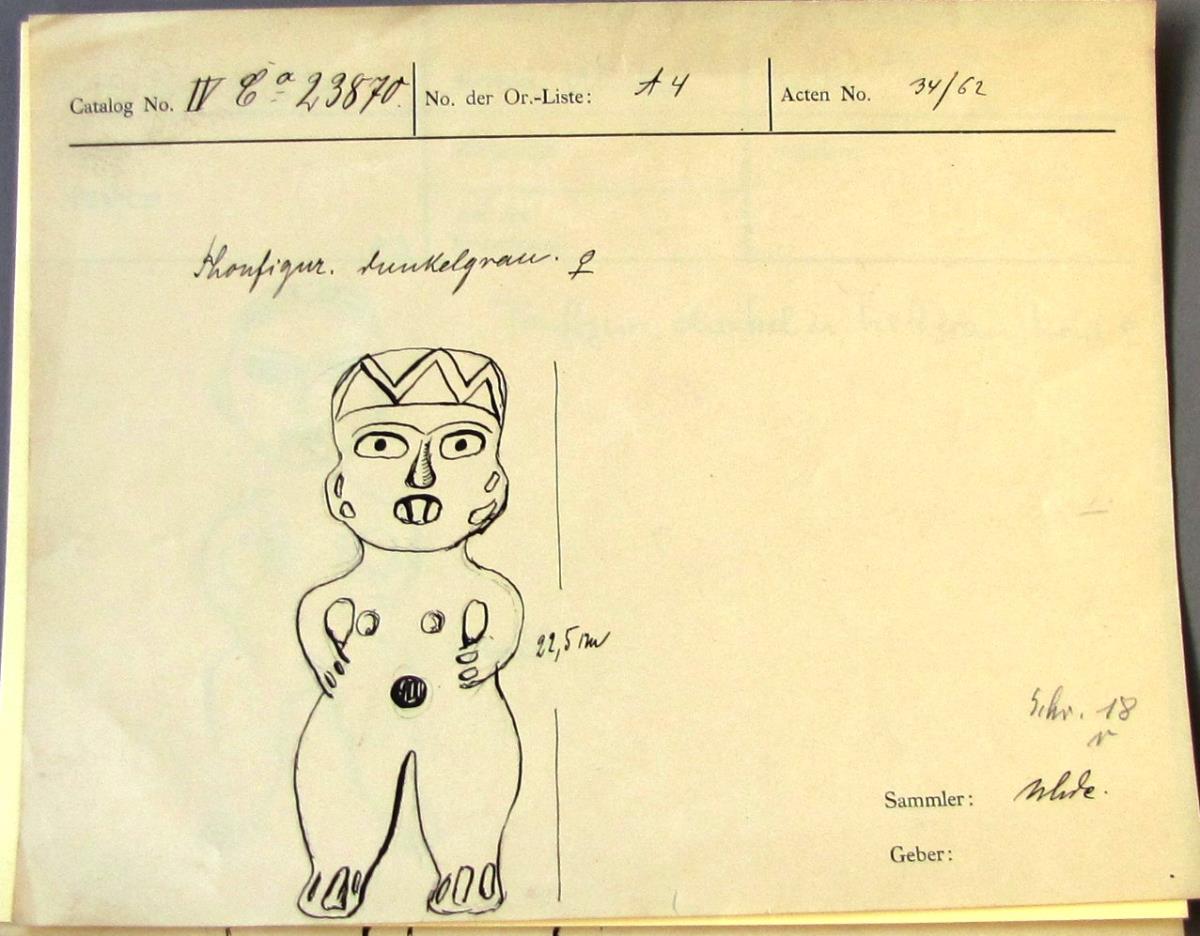 Catalog No. IV Ca 23870. No. der Or.-Liste: A 4 Acten No. 34/62
Thonfigur. dunkelgrau. ♀
22,5 cm
Schr. 18
Sammler: Uhde.
Geber: